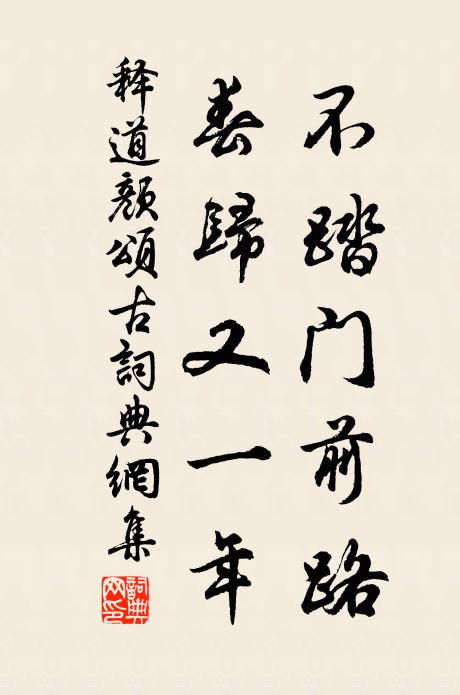 不踏门前路
春歸又一年
释道颜頌古詞典網集
詞典
网印